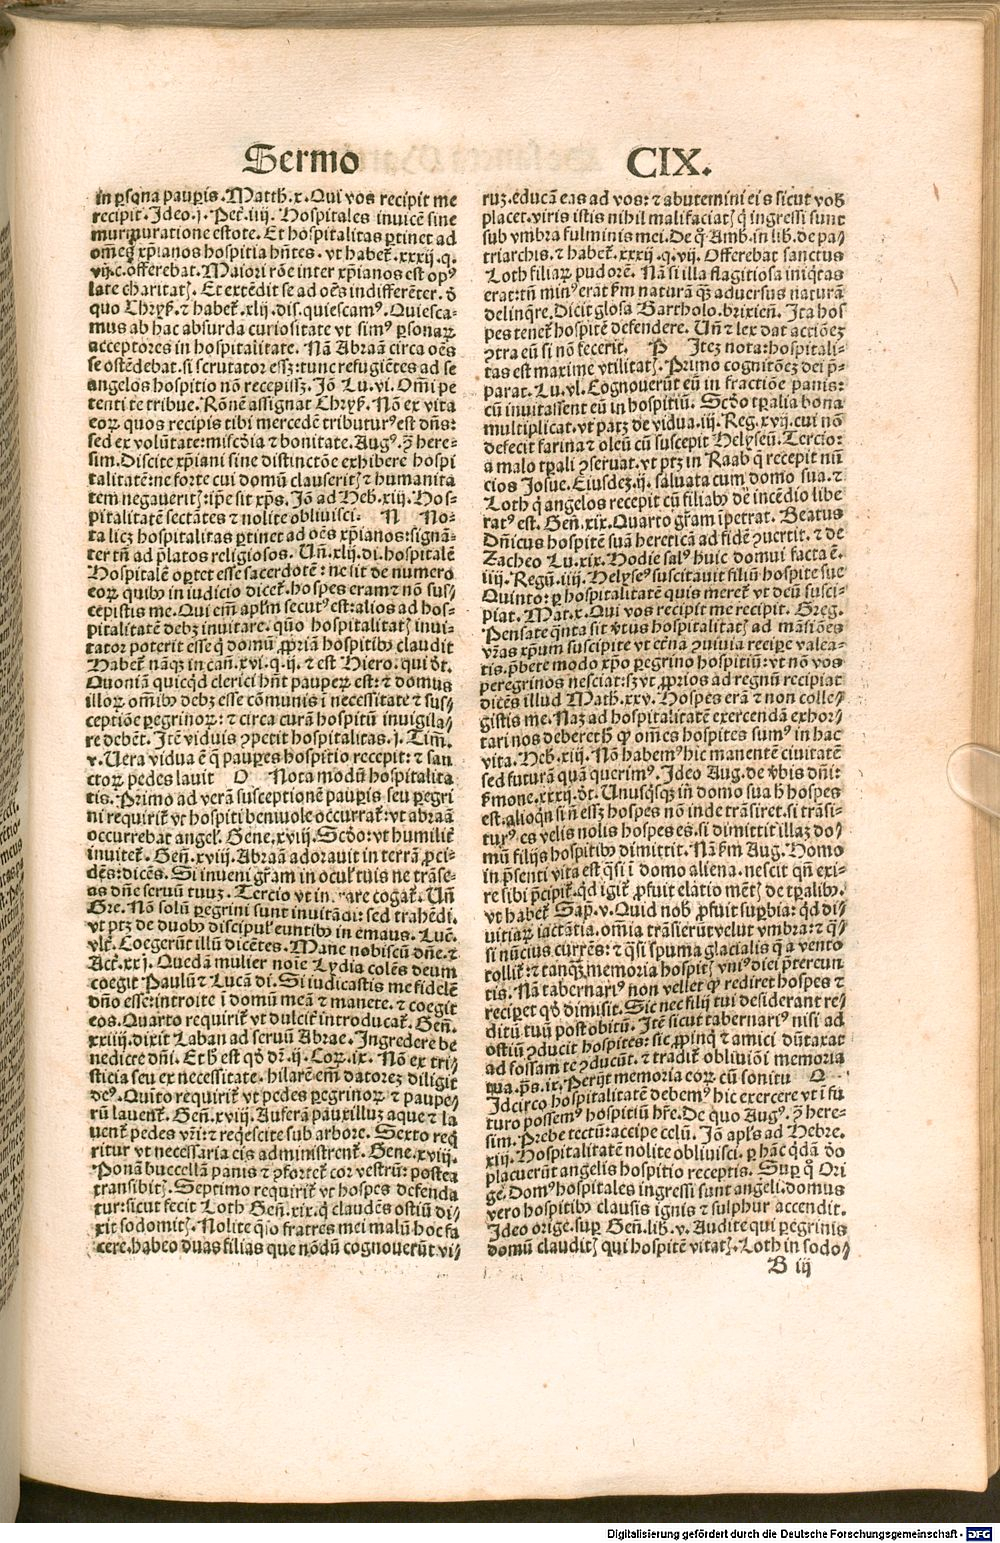 Sermo
CIX.
in ꝑsona pauꝑis. Matth. x. Qui vos recipit me
recipit. Ideo. j. Pet̃. iiij. Hospitales inuicẽ sine
murmuratione estote. Et hospitalitas ꝑtinet ad
om̃es xp̃ianos hospitia hñtes. vt habet̃. xxxij. q.
vij. c. offerebat. Maiori rõe inter xp̃ianos est opꝰ
late charitatꝭ. Et extẽdit se ad oẽs indifferẽter. d̃
quo Chryß. ⁊ habet̃. xlij. dis. quiescamꝰ. Quiesca-
mus ab hac absurda curiositate vt simꝰ ꝑsonaꝝ
acceptores in hospitalitate. Nã Abraã circa oẽs
se ostẽdebat. si scrutator essꝫ: tunc refugiẽtes ad se
angelos hospitio nõ recepissꝫ. Iõ Lu. vi. Om̃i pe
tenti te tribue. Rõnẽ assignat Chryß. Nõ ex vita
eoꝝ quos recipis tibi mercedẽ tributurꝰ est dñs:
sed ex volũtate: miscďia ⁊ bonitate. Augꝰ. ꝯ here-
sim. Discite xp̃iani sine distinctõe exhibere hospi
talitatẽ: ne forte cui domũ clauseritꝭ ⁊ humanita
tem negaueritꝭ: ip̃e sit xp̃s. Iõ ad Heb. xiij. Hos-
pitalitatẽ sectãtes ⁊ nolite obliuisci. N No-
ta licꝫ hospitalitas ꝑtinet ad oẽs xp̃ianos: signã-
ter tñ ad p̃latos religiosos. Uñ. xlij. di. hospitalẽ
Hospitalẽ oꝑtet esse sacerdotẽ: ne sit de numero
eoꝝ quibꝰ in iudicio dicet̃. hospes eram ⁊ nõ sus-
cepistis me. Qui em̃ apl̃m secutꝰ est: alios ad hos-
pitalitatẽ debꝫ inuitare. quõo hospitalitatꝭ inui-
tator poterit esse q̇ domũ ꝓpriã hospitibꝰ claudit
Habet̃ nãqꝫ in cañ. xvi. q. ij. ⁊ est Hiero. qui d̃t.
Quoniã quicq̇d clerici hñt pauperꝝ est: ⁊ domus
illoꝝ om̃ibꝰ debꝫ esse cõmunis ĩ necessitate ⁊ sus-
ceptiõe ꝑegrinoꝝ: ⁊ circa curã hospitũ inuigila-
re debẽt. Itẽ viduis ꝯpetit hospitalitas. j. Tim̃.
v. Uera vidua ẽ q̇ pauꝑes hospitio recepit: ⁊ san
ctoꝝ pedes lauit O Nota modũ hospitalita
tis. Primo ad verã susceptionẽ pauꝑis seu ꝑegri
ni requirit̃ vt hospiti beniuole occurrat̃: vt abraã
occurrebat angel'. Gene. xviij. Scďo: vt humilit̃
inuitet̃. Geñ. xviij. Abraã adorauit in terrã ꝓci-
dẽs: dicẽs. Si inueni grãm in ocul' tuis ne trãse-
as dñe seruũ tuuꝫ. Tercio vt in rare cogat̃. Uñ
Gre. Nã solũ ꝑegrini sunt inuitãdi: sed trahẽdi.
vt ptꝫ de duobꝰ discipul' euntibꝰ in emaus. Luc̃.
vlt̃. Coegerũt illũ dicẽtes. Mane nobiscũ dñe. ⁊
Act̃. xxj. Quedã mulier noĩe Lydia colẽs deum
coegit Paulũ ⁊ Lucã di. Si iudicastis me fidelẽ
dño esse: introite ĩ domũ meã ⁊ manete. ⁊ coegit
eos. Quarto requirit̃ vt dulcit̃ introducat̃. Geñ.
xxiiij. dixit Laban ad seruũ Abrae. Ingredere be
nedicte dñi. Et h̃ est qḋ dr̃. ij. Coꝝ. ix. Nõ ex tri-
sticia seu ex necessitate. hilarẽ em̃ datorẽ diligit
deꝰ. Quito requirit̃ vt pedes ꝑegrinoꝝ ⁊ paupe-
rũ lauent̃. Geñ. xviij. Auferã pauxilluꝫ aque ⁊ la
uent̃ pedes vr̃i: ⁊ req̇escite sub arbore. Sexto req̇
ritur vt necessaria eis administrent̃. Gene. xviij.
Ponã buccellã panis ⁊ ꝯfortet̃ cor vestrũ: postea
transibitꝭ. Septimo requirit̃ vt hospes defenda
tur: sicut fecit Loth Geñ. xix. q̇ claudẽs ostiũ di-
xit sodomitꝭ. Nolite q̃so fratres mei malũ hoc fa
cere. habeo duas filias que nõdũ cognouerũt vi-
ruꝫ. educã eas ad vos: ⁊ abutemini eis sicut vob̃
placet. viris istis nihil mali faciatꝭ q̇ ingressi sunt
sub vmbra fulminis mei. De q̊ Amb. in lib. de pa-
triarchis. ⁊ habet̃. xxxij. q. vij. Offerebat sanctus
Loth filiaꝝ pudorẽ. Nã si illa flagitiosa iniq̇tas
erat: tñ minꝰ erat ẜm naturã qꝫ aduersus naturã
delinq̃re. Dicit glosa Bartholo. brixieñ. Ita hos
pes tenet̃ hospitẽ defendere. Uñ ⁊ lex dat actiõeꝫ
ꝯtra eũ si nõ fecerit. P Iteꝫ nota: hospitali-
tas est maxime vtilitatꝭ. Primo cognitõeꝫ dei p̃-
parat. Lu. vl. Cognouerũt eũ in fractiõe panis:
cũ inuitassent eũ in hospitiũ. Scďo tꝑalia bona
multiplicat. vt patꝫ de vidua. iij. Reg. xvij. cui nõ
defecit farina ⁊ oleũ cũ suscepit Helyseũ. Tercio:
a malo tꝑali ꝯseruat. vt ptꝫ in Raab q̇ recepit nũ
cios Iosue. Eiusdeꝫ. ij. saluata cum domo sua. ⁊
Loth q̇ angelos recepit cũ filiabꝰ de incẽdio libe
ratꝰ est. Geñ. xix. Quarto gr̃am ĩpetrat. Beatus
Dñicus hospitẽ suã hereticã ad fidẽ ꝯuertit. ⁊ de
Zacheo Lu. xix. Hodie salꝰ huic domui facta ẽ.
iiij. Regũ. iiij. Helysꝰ suscitauit filiũ hospite sue
Quinto: ꝑ hospitalitatẽ quis meret̃ vt deũ susci-
piat. Mat. x. Qui vos recipit me recipit. Greg.
Pensate q̃nta sit v̓tus hospitalitatꝭ ad mãsiões
vr̃as xp̃um suscipite vt et̓na ꝯuiuia recipe valea-
tis. p̃bete modo xp̃o ꝑegrino hospitiũ: vt nõ vos
peregrinos nesciat: sꝫ vt ꝓprios ad regnũ recipiat
dicẽs illud Math. xxv. Hospes erã ⁊ non colle-
gistis me. Naꝫ ad hospitalitatẽ exercendã exhor-
tari nos deberet hꝭ ꝙ om̃es hospites sumꝰ in hac
vita. Heb. xiij. Nõ habemꝰ hic manentẽ ciuitatẽ
sed futurã quã querimꝰ. Ideo Aug. de v̓bis dñi:
ẜmone. xxxij. d̃t. Unusq̇sqꝫ in domo sua h̃ hospes
est. alioq̇n si ñ essꝫ hospes nõ inde trãsiret. si trãsi-
turꝰ es velis nolis hospes es. si dimittit illaꝫ do-
mũ filijs hospitibꝰ dimittit. Nã ẜm Aug. Homo
in p̃senti vita est q̃si ĩ domo aliena. nescit qñ exi-
re sibi p̃cipit̃. qd igit̃ ꝓfuit elatio mẽtꝭ de tꝑalibꝰ.
vt habet̃ Sap̃. v. Quid nob̃ ꝓfuit suꝑbia: qd di-
uitiaꝝ iactãtia. om̃ia trãsierũt velut vmbra: ⁊ q̃-
si nũcius currẽs: ⁊ q̃si spuma glacialis q̇ a vento
tollit̃: ⁊ tanqꝫ memoria hospitꝭ vniꝰ diei p̃tereun
tis. Nã tabernariꝰ non vellet ꝙ rediret hospes ⁊
reciꝑet qḋ dimisit. Sic nec filij tui desiderant re-
ditũ tuũ post obitũ. Itẽ sicut tabernariꝰ nisi ad
ostiũ ꝯducit hospites: sic ꝓpinq̇ ⁊ amici dũtaxat
ad fossam te ꝯducũt. ⁊ tradit̃ obliuiõi memoria
tua. ps̃. ix. Perijt memoria eoꝝ cũ sonitu Q
Idcirco hospitalitatẽ debemꝰ hic exercere vt ĩ fu
turo possemꝰ hospitiũ hr̃e. De quo Augꝰ. ꝯ here-
sim. Prebe tectũ: accipe celũ. Iõ apl̃s ad Hebre.
xiij. Hospitalitatẽ nolite obliuisci. ꝑ hãc q̇dã do
placuerũt angelis hospitio receptis. Suꝑ q̊ Ori
ge. Domꝰ hospitales ingressi sunt angeli. domus
vero hospitibꝰ clausis ignis ⁊ sulphur accendit.
Ideo orige. suꝑ Geñ. lib. v. Audite qui ꝑegrinis
domũ clauditꝭ qui hospitẽ vitatꝭ. Loth in sodo-
B iij
Digitalisierung gefördert durch die Deutsche Forschungsgemeinschaft - DFG